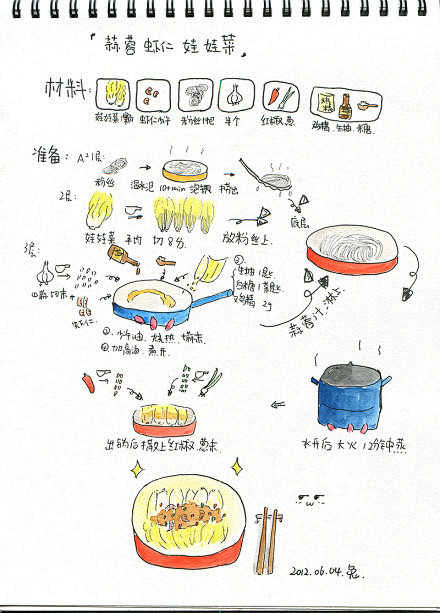 「蒜蓉 虾仁 娃娃菜」
材料:
娃娃菜1颗 虾仁少许 粉丝1把 半个 红椒.葱 鸡精.生抽.白糖.
准备: A²1层:
粉丝 温水泡 10+min 泡软 捞出
2层: 底层
娃娃菜 平均 切8分 放粉丝上.
3层:
生抽 1匙
白糖 1茶匙
鸡精 2g
切末
蒜蓉汁.淋上
①.少许油.烧热.
②加高汤.煮开
出锅后撒上红椒.葱末.
水开后大火12分钟蒸
2012.06.04.